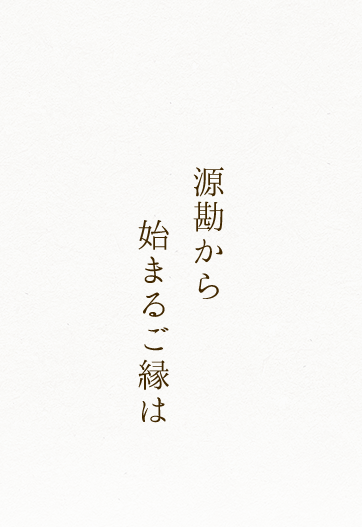 源勘から
始まるご縁は